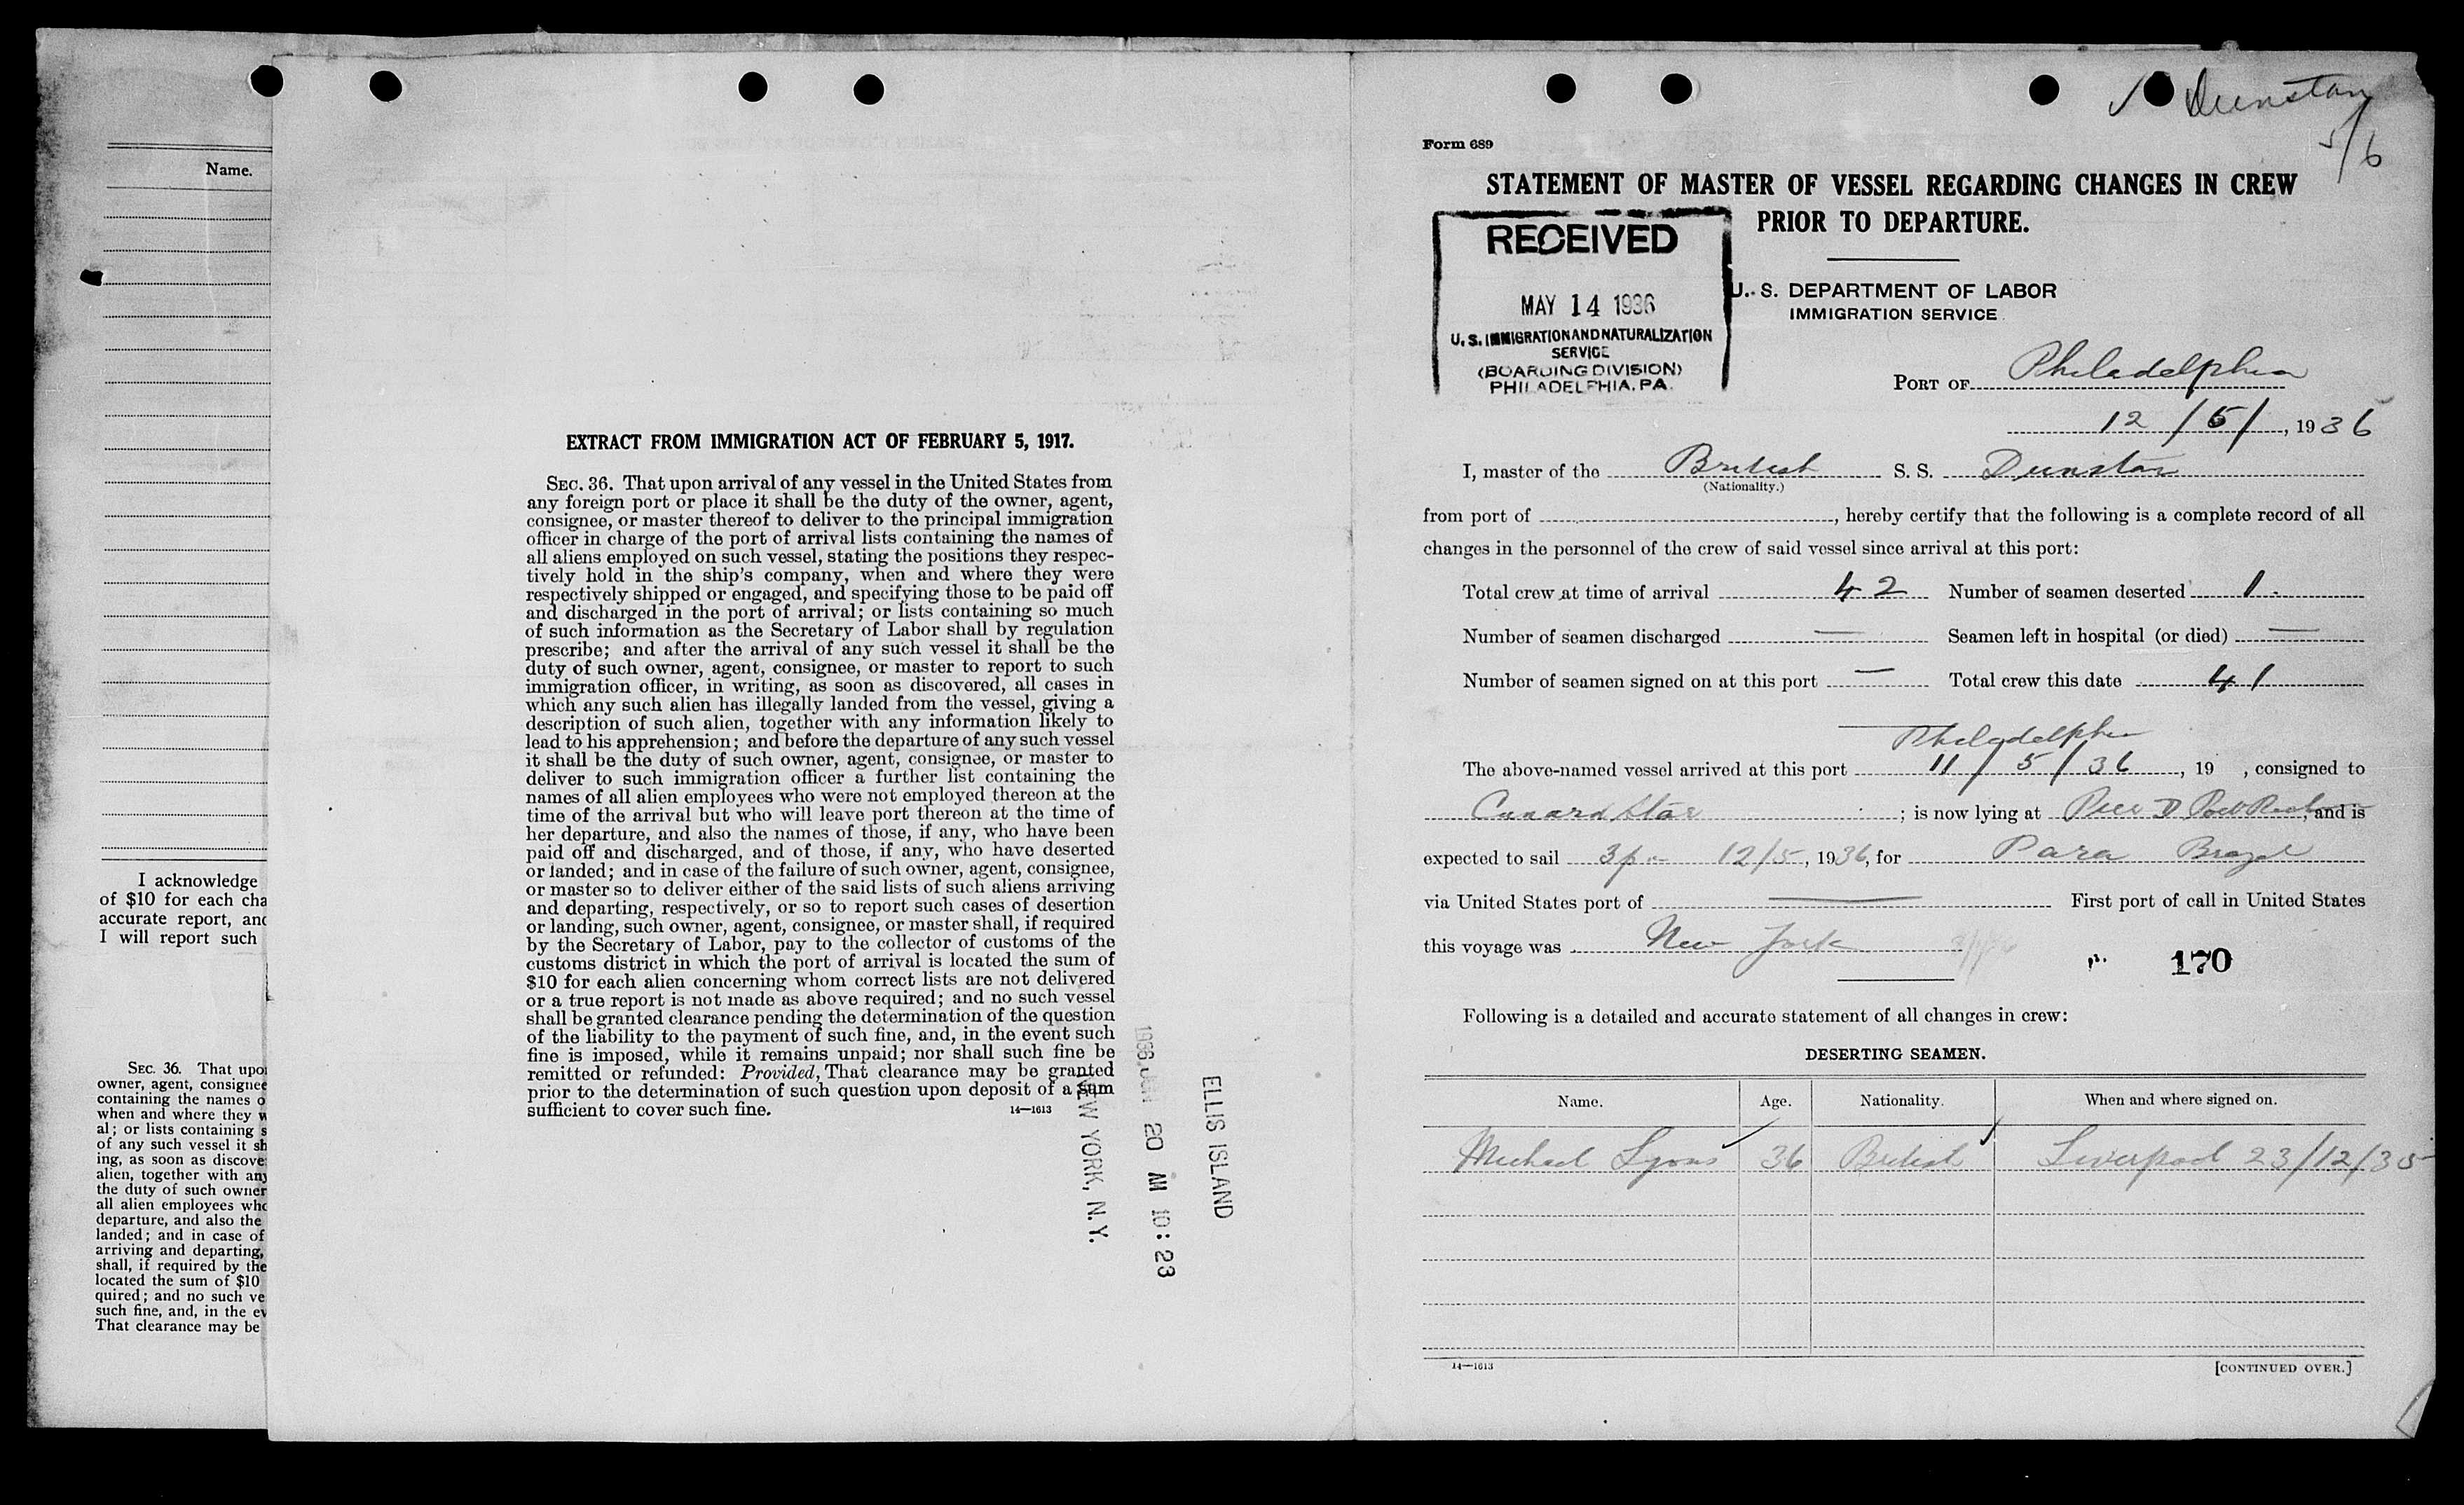 Name.
I acknowledge
of $10 for each cha
accurate report, and
I will report such
SEC. 36. That upo
owner, agent, consignee
containing the names o
when and where they w
al; or lists containing s
of any such vessel it sh
ing, as soon as discove
alien, together with any
the duty of such owner
all alien employees who
departure, and also the
landed; and in case of
arriving and departing,
shall, if required by the
located the sum of $10
quired; and no such ve
such fine, and, in the ev
That clearance may be
EXTRACT FROM IMMIGRATION ACT OF FEBRUARY 5, 1917.
SEC. 36. That upon arrival of any vessel in the United States from
any foreign port or place it shall be the duty of the owner, agent,
consignee, or master thereof to deliver to the principal immigration
officer in charge of the port of arrival lists containing the names of
all aliens employed on such vessel, stating the positions they respec-
tively hold in the ship's company, when and where they were
respectively shipped or engaged, and specifying those to be paid off
and discharged in the port of arrival; or lists containing so much
of such information as the Secretary of Labor shall by regulation
prescribe; and after the arrival of any such vessel it shall be the
duty of such owner, agent, consignee, or master to report to such
immigration officer, in writing, as soon as discovered, all cases in
which any such alien has illegally landed from the vessel, giving a
description of such alien, together with any information likely to
lead to his apprehension; and before the departure of any such vessel
it shall be the duty of such owner, agent, consignee, or master to
deliver to such immigration officer a further list containing the
names of all alien employees who were not employed thereon at the
time of the arrival but who will leave port thereon at the time of
her departure, and also the names of those, if any, who have been
paid off and discharged, and of those, if any, who have deserted
or landed; and in case of the failure of such owner, agent, consignee,
or master so to deliver either of the said lists of such aliens arriving
and departing, respectively, or so to report such cases of desertion
or landing, such owner, agent, consignee, or master shall, if required
by the Secretary of Labor, pay to the collector of customs of the
customs district in which the port of arrival is located the sum of
$10 for each alien concerning whom correct lists are not delivered
or a true report is not made as above required; and no such vessel
shall be granted clearance pending the determination of the question
of the liability to the payment of such fine, and, in the event such
fine is imposed, while it remains unpaid; nor shall such fine be
remitted or refunded: Provided, That clearance may be granted
prior to the determination of such question upon deposit of a sum
sufficient to cover such fine.
14—1613
NEW YORK, N.Y.
1936 JUN 20 AM 10:23
ELLIS ISLAND
Dunstan
5/6
Form 689
STATEMENT OF MASTER OF VESSEL REGARDING CHANGES IN CREW
PRIOR TO DEPARTURE.
RECEIVED
MAY 14 1936
U.S. IMMIGRATION AND NATURALIZATION
SERVICE
(BOARDING DIVISION)
PHILADELPHIA, PA.
U. S. DEPARTMENT OF LABOR
IMMIGRATION SERVICE
PORT OF Philadelphia
12/5/, 1936
I, master of the British S. S. Dunstan
(Nationality.)
from port of , hereby certify that the following is a complete record of all
changes in the personnel of the crew of said vessel since arrival at this port:
Total crew at time of arrival 42 Number of seamen deserted 1.
Number of seamen discharged — Seamen left in hospital (or died) —
Number of seamen signed on at this port — Total crew this date 41
Philadelphia
The above-named vessel arrived at this port 11/5/36, 19 , consigned to
Cunard Star ; is now lying at Pier D , and is
expected to sail 3pm 12/5, 1936, for Para Brazil
via United States port of — First port of call in United States
this voyage was New York
170
Following is a detailed and accurate statement of all changes in crew:
DESERTING SEAMEN.
Name. Age. Nationality. When and where signed on.
Michael Lyons 36 British Liverpool 23/12/35
14—1613 [CONTINUED OVER.]